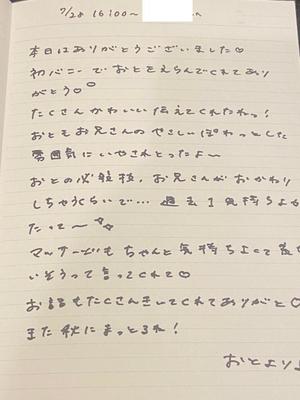 7/28 16:00〜
本日はありがとうございました♡
初バニーでおとをえらんでくれてあり
がとう♡
たくさんかわいい伝えてくれたねっ!
おともお兄さんのやさしいぽわっとした
雰囲気にいやされとったよ〜
おとの必殺技、お兄さんがおかわり
しちゃうくらいで… 過去1気持ちよか
たって〜
マッサージもちゃんと気持ちよくて
いそうって言ってくれて♡
お話もたくさんきいてくれてありがと♡
また秋にまっとるね!
おとより